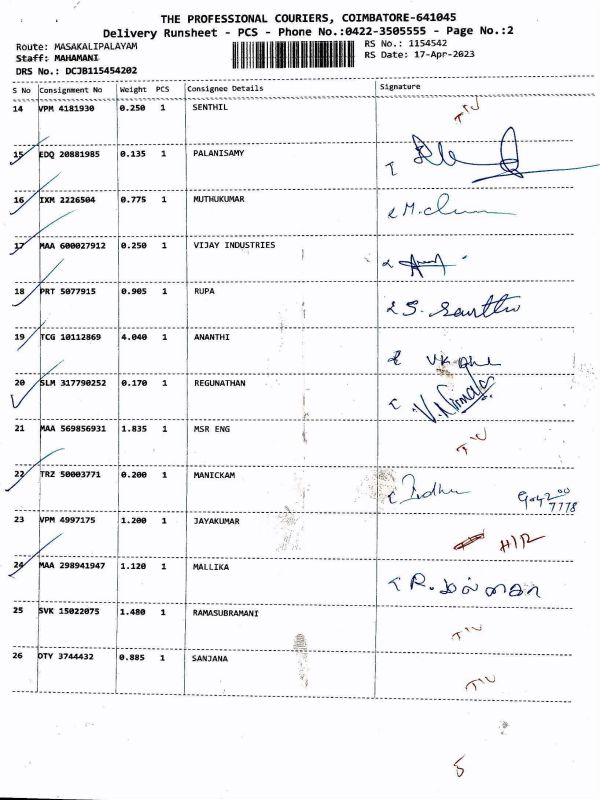 THE PROFESSIONAL COURIERS, COIMBATORE-641045
Delivery Runsheet - PCS - Phone No.:0422-3505555 - Page No.:2
Route: MASAKALIPALAYAM
RS No.: 1154542
Staff: MAHAMANI
RS Date: 17-Apr-2023
DRS No.: DCJB115454202
S No Consignment No Weight PCS Consignee Details Signature
14 VPM 4181930 0.250 1 SENTHIL
15 EDQ 20881985 0.135 1 PALANISAMY
16 IXM 2226504 0.775 1 MUTHUKUMAR
17 MAA 600027912 0.250 1 VIJAY INDUSTRIES
18 PRT 5077915 0.905 1 RUPA
19 TCG 10112869 4.040 1 ANANTHI
20 SLM 317790252 0.170 1 REGUNATHAN V.Nirmala
21 MAA 569856931 1.835 1 MSR ENG
22 TRZ 50003771 0.200 1 MANICKAM
23 VPM 4997175 1.200 1 JAYAKUMAR
24 MAA 298941947 1.120 1 MALLIKA
25 SVK 15022075 1.480 1 RAMASUBRAMANI
26 OTY 3744432 0.885 1 SANJANA